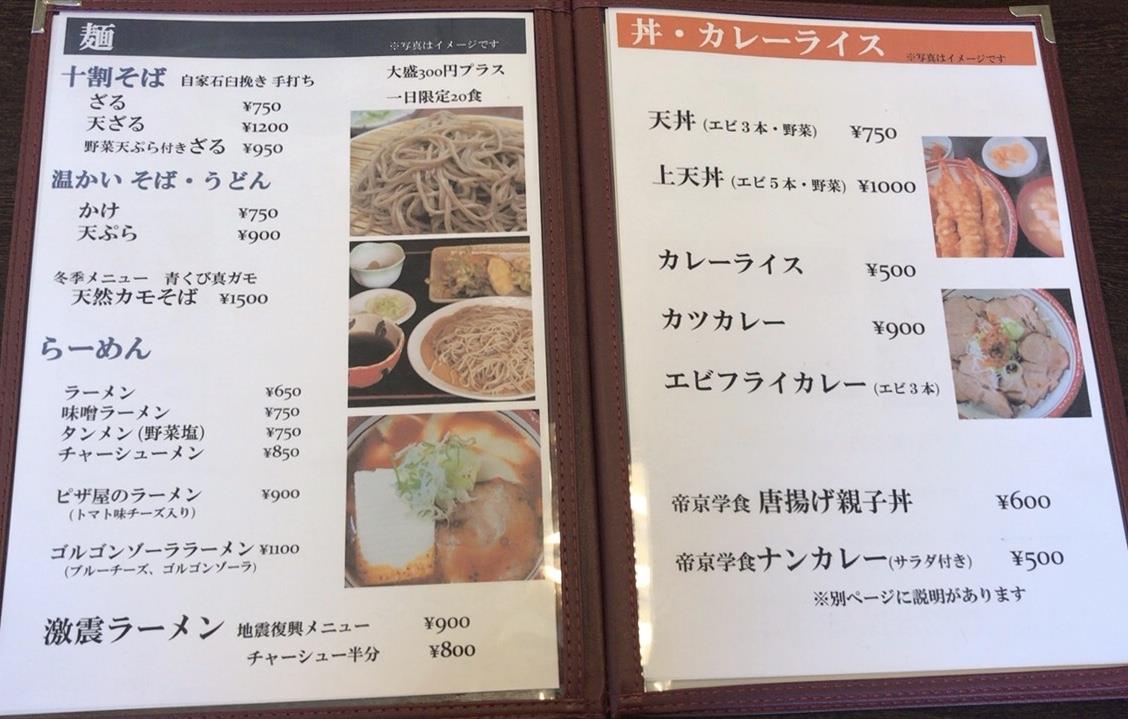 麺
※写真はイメージです
十割そば 自家石臼挽き 手打ち
大盛300円プラス
一日限定20食
ざる ¥750
天ざる ¥1200
野菜天ぷら付きざる ¥950
温かい そば・うどん
かけ ¥750
天ぷら ¥900
冬季メニュー 青くび真ガモ
天然カモそば ¥1500
らーめん
ラーメン ¥650
味噌ラーメン ¥750
タンメン(野菜塩) ¥750
チャーシューメン ¥850
ピザ屋のラーメン ¥900
(トマト味チーズ入り)
ゴルゴンゾーララーメン ¥1100
(ブルーチーズ、ゴルゴンゾーラ)
激震ラーメン 地震復興メニュー ¥900
チャーシュー半分 ¥800
丼・カレーライス
※写真はイメージです
天丼 (エビ3本・野菜) ¥750
上天丼 (エビ5本・野菜) ¥1000
カレーライス ¥500
カツカレー ¥900
エビフライカレー (エビ3本)
帝京学食 唐揚げ親子丼 ¥600
帝京学食ナンカレー(サラダ付き) ¥500
※別ページに説明があります